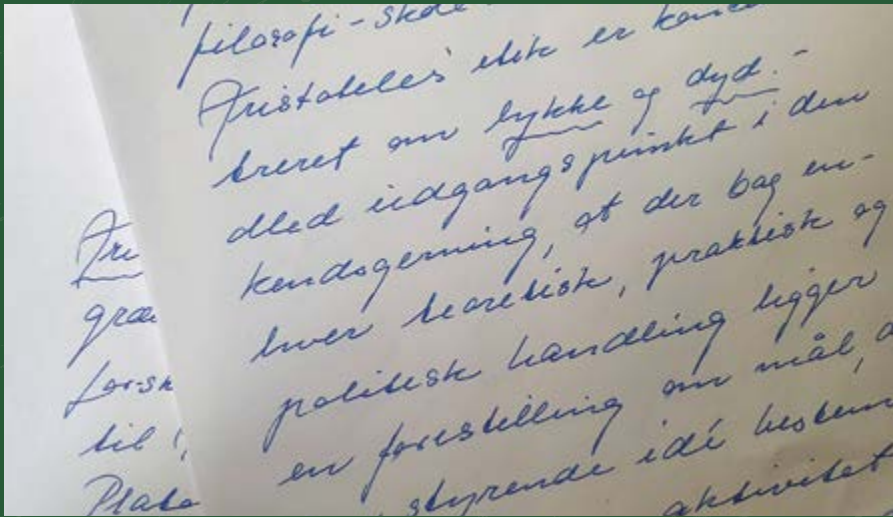 filosofi-skole
Aristoteles' etik er
treret om lykke og dyd. -
dled udgangspunkt i den
kendsgerning, at der bag en-
hver teoretisk, praktisk og
politisk handling ligger
en forestilling om mål,
styrende idé bestem
aktivitet
Ari
græ
for-sk
til
Plato